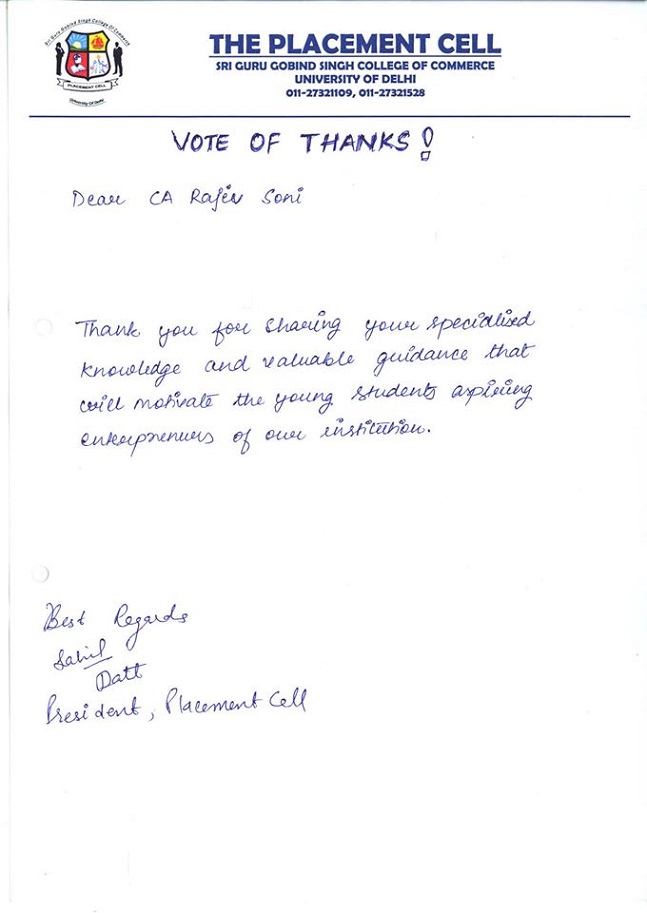 Sri Guru Gobind Singh College Of Commerce
PLACEMENT CELL
University Of Delhi
THE PLACEMENT CELL
SRI GURU GOBIND SINGH COLLEGE OF COMMERCE
UNIVERSITY OF DELHI
011-27321109, 011-27321528
VOTE OF THANKS!
Dear CA Rajiv Soni
Thank you for sharing your specialised
knowledge and valuable guidance that
will motivate the young students aspiring
enterprenuers of our institution.
Best Regards
Sahil
Datt
President, Placement Cell